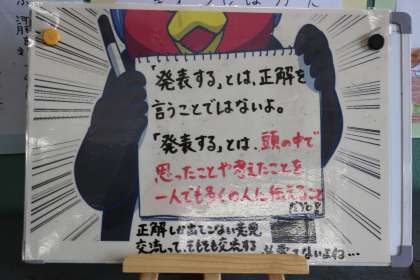 「発表する」とは、正解を
言うことではないよ。
「発表する」とは、頭の中で
思ったことや考えたことを
一人でも多くの人に伝えること
正解しか出てこない発見
交流って、そもそも交流する
必要てないよね…